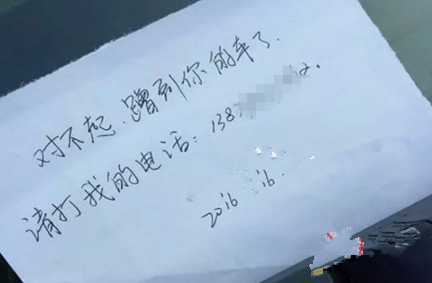 对不起.蹭到你的车了.
请打我的电话:138
2016 16.